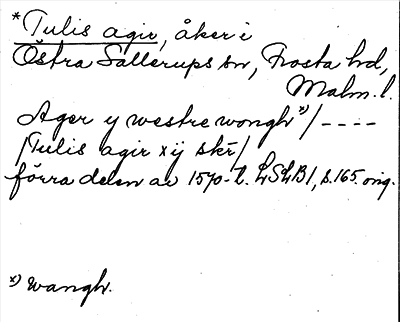 *Tulis agir, åker i
Östra Sallerups sn, Frosta hd,
Malm. l.
Ager y westre wongh x)/----
/Tulis agir xij skr/
förra delen av 1570-t. LSLB1, s. 165. orig.
x) wangh.